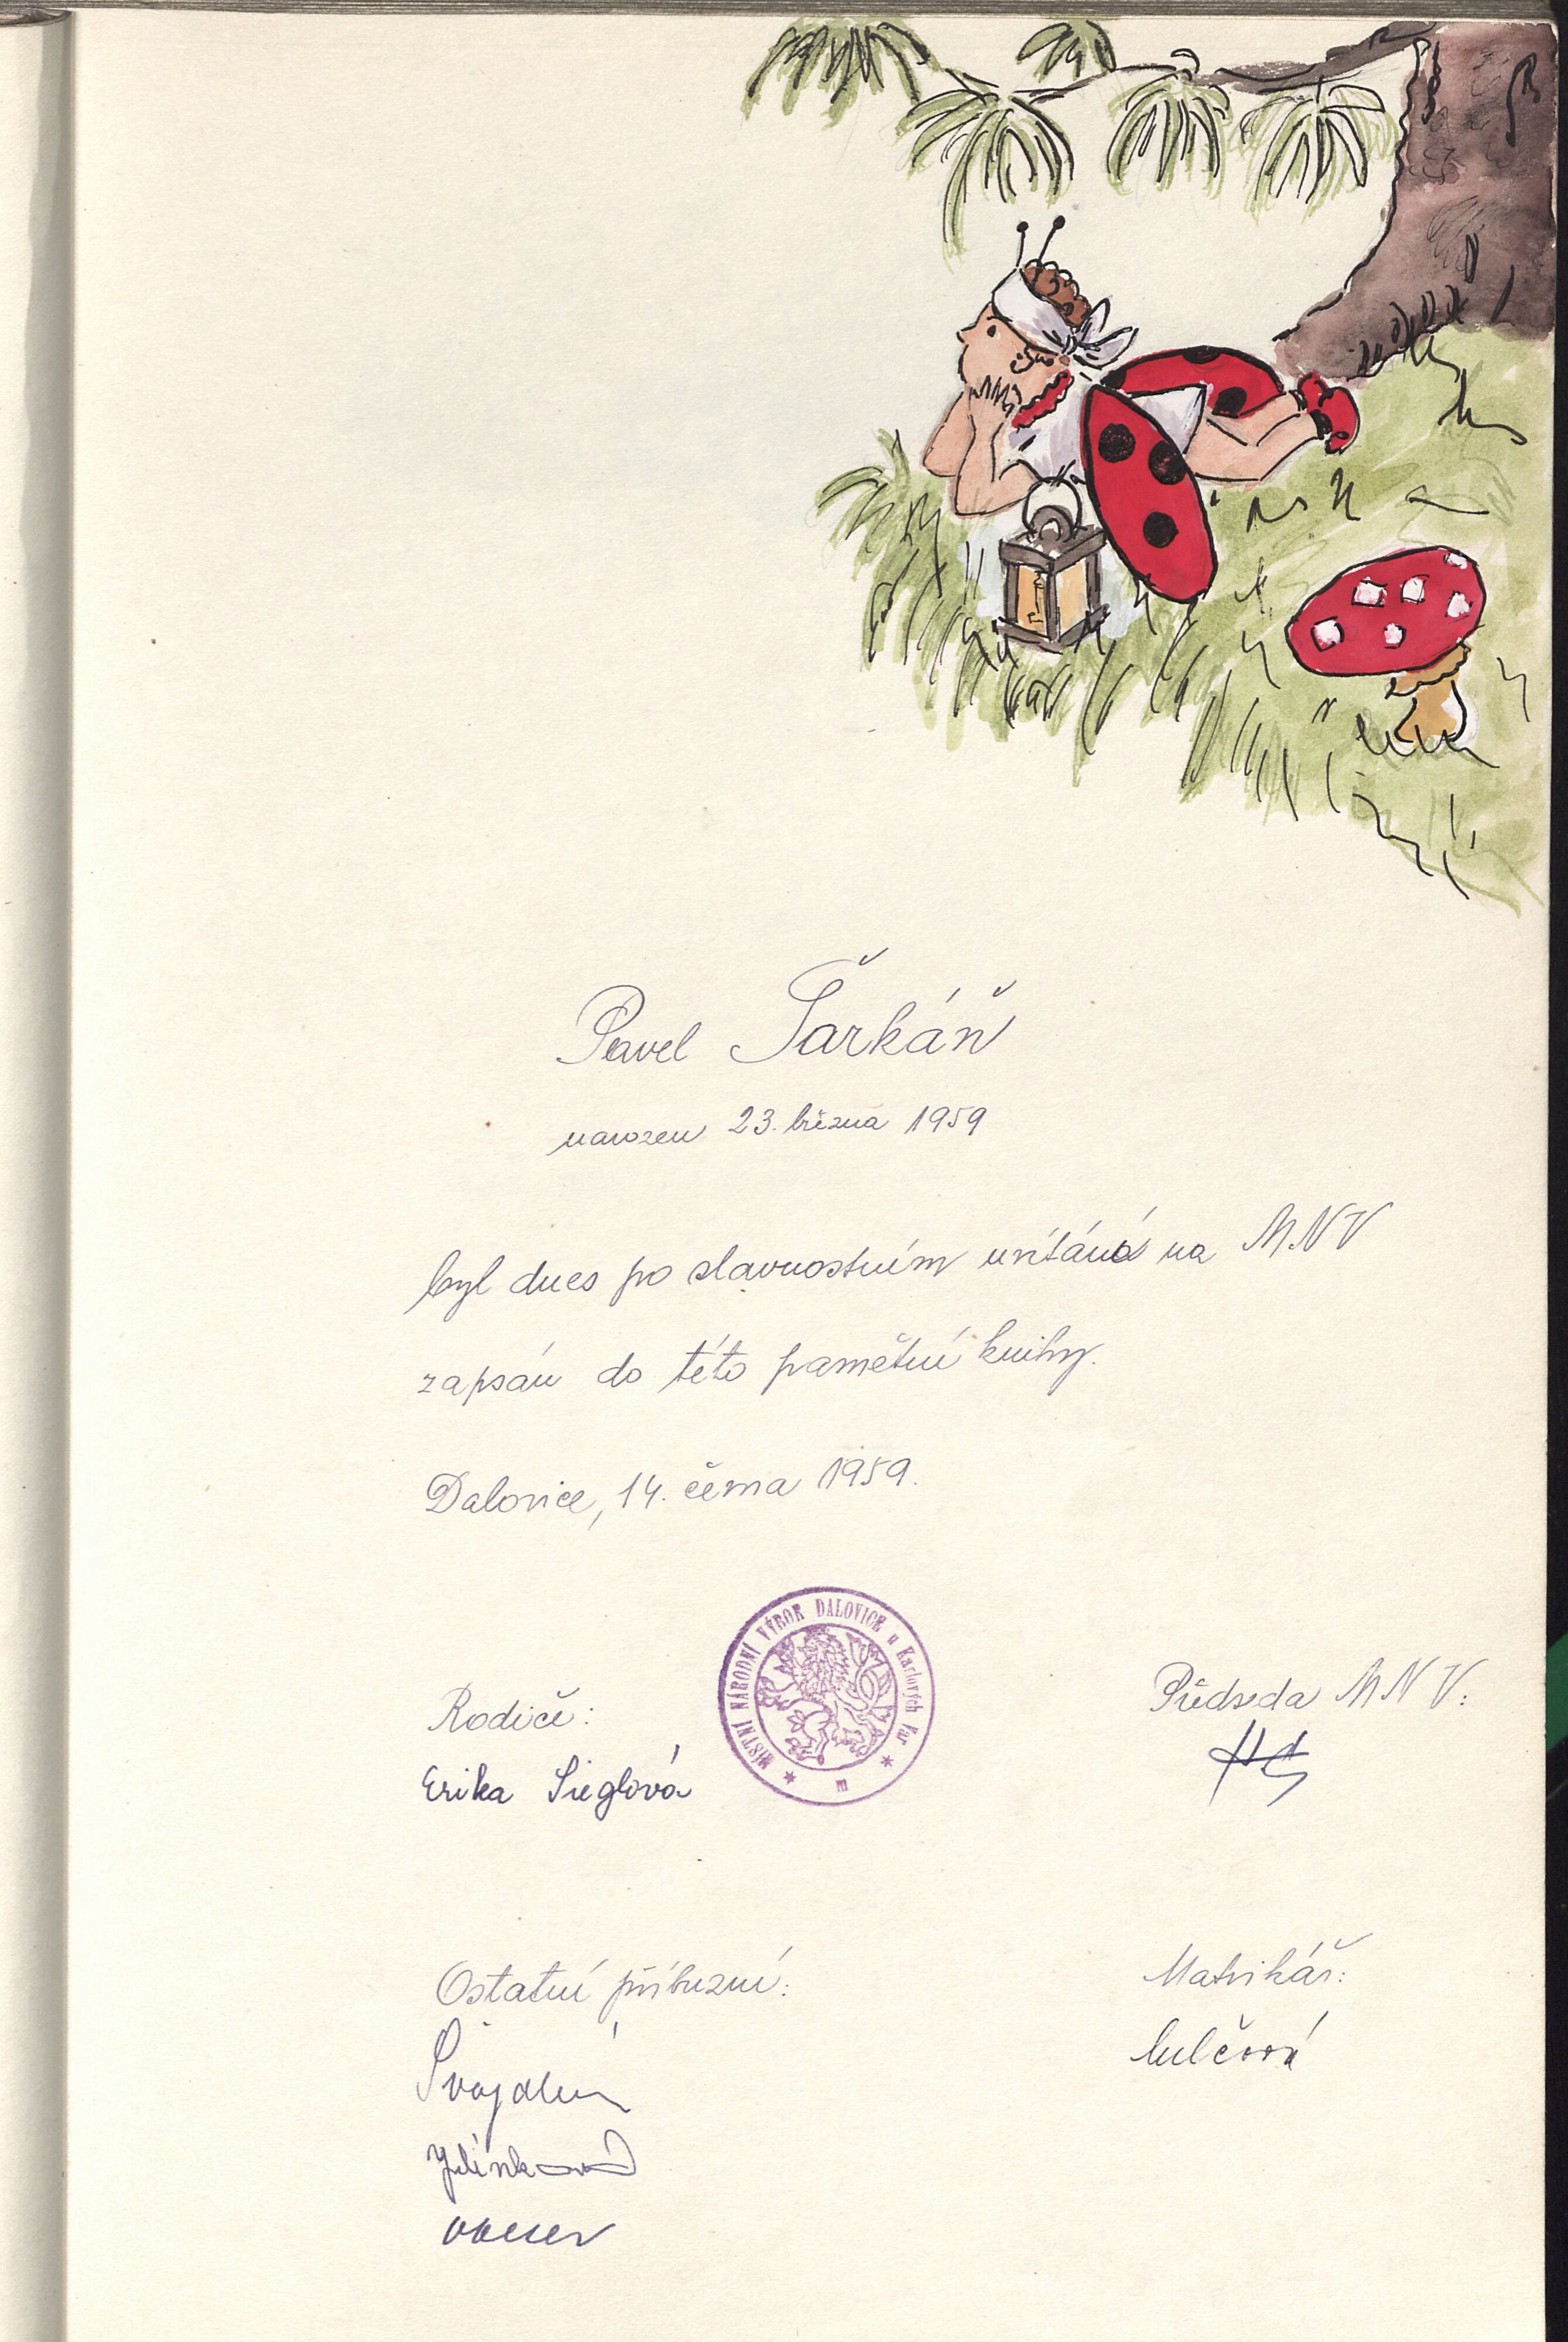 Pavel Šarkáň
narozen 23. března 1959
byl dnes po slavnostním uvítání na MNV
zapsán do této pamětní knihy.
Dalovice, 14. června 1959.
MÍSTNÍ NÁRODNÍ VÝBOR DALOVICE u Karlových Var
m
Rodiče:
Erika Sieglová
Předseda MNV:
Ostatní příbuzní:
Matrikář: